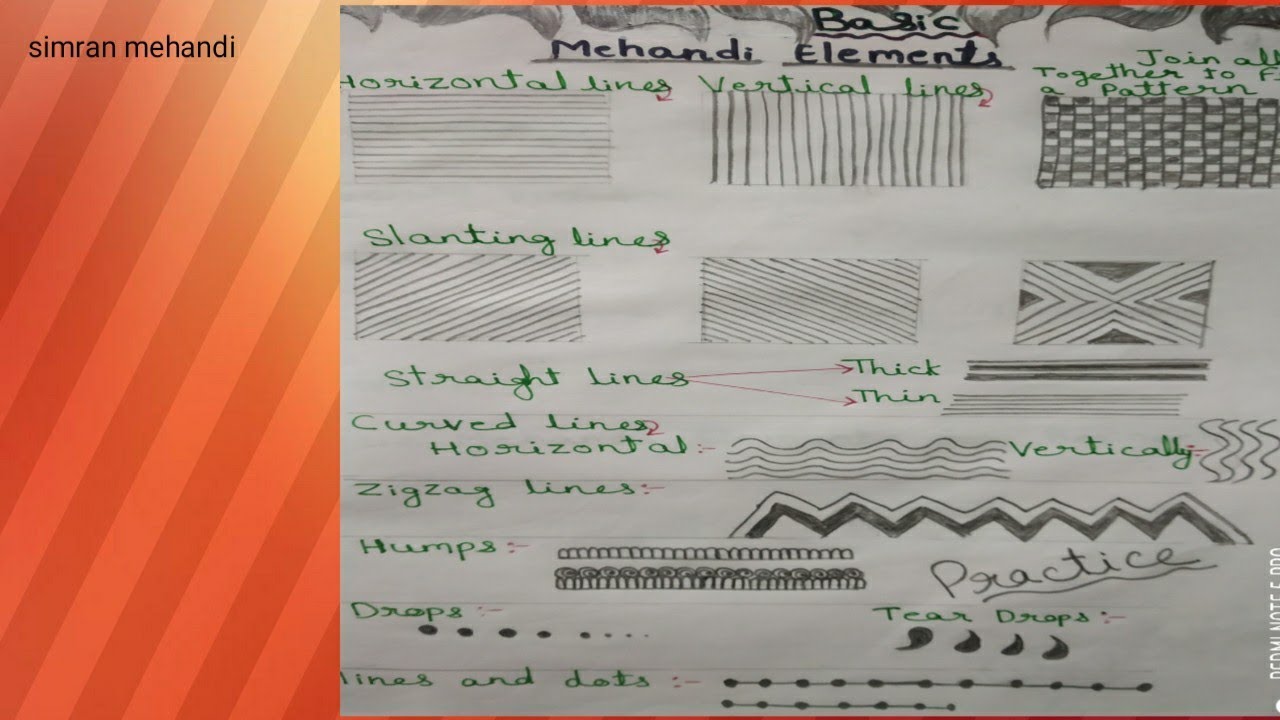 simran mehandi
Basic
Mehandi Elements
Horizontal lines
Vertical lines
Join all
Together to F
a Pattern
Slanting lines
Straight lines
Thick
Thin
Curved lines
Horizontal:-
Vertically:-
Zigzag lines:-
Humps:-
Practice
Drops:-
Tear Drops:-
lines and dots:-
REDMI NOTE 5 PRO